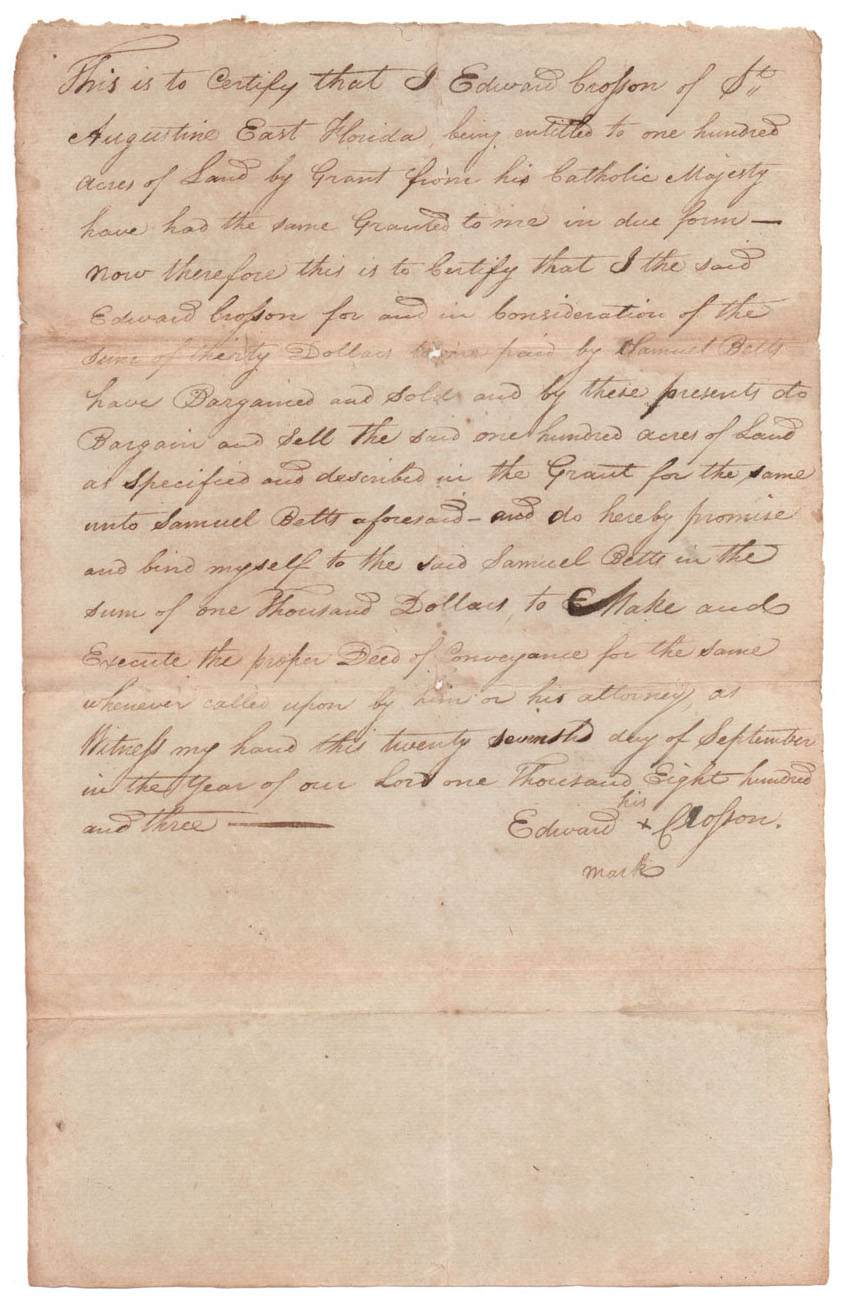 This is to Certify that I Edward Crosson of St,,
Augustine East Florida, being entitled to one hundred
acres of Land by Grant from his Catholic Majesty
have had the same Granted to me in due form—
Now therefore this is to Certify that I the said
Edward Crosson for and in Consideration of the
Sum of thirty Dollars to me paid by Samuel Betts
have Bargained and Sold and by these presents do
Bargain and Sell the said one hundred acres of Land
as Specified and described in the Grant for the same
unto Samuel Betts aforesaid – and do hereby promise
and bind myself to the said Samuel Betts in the
sum of one Thousand Dollars, to Make and
Execute the proper Deed of Conveyance for the same
whenever called upon by him or his attorney, as
Witness my hand this twenty seventh day of September
in the Year of our Lord one Thousand Eight hundred
and three —
his
Edward + Crosson.
mark